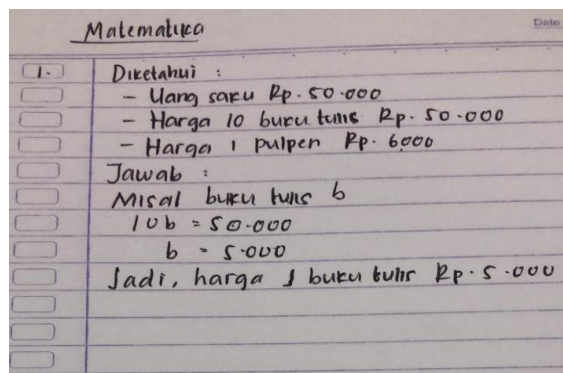 Matematika
Date
1. Diketahui :
- Uang saku Rp. 50.000
- Harga 10 buku tulis Rp. 50.000
- Harga 1 pulpen Rp. 6000
Jawab :
Misal buku tulis b
10b = 50.000
b = 5.000
Jadi, harga 1 buku tulis Rp. 5.000